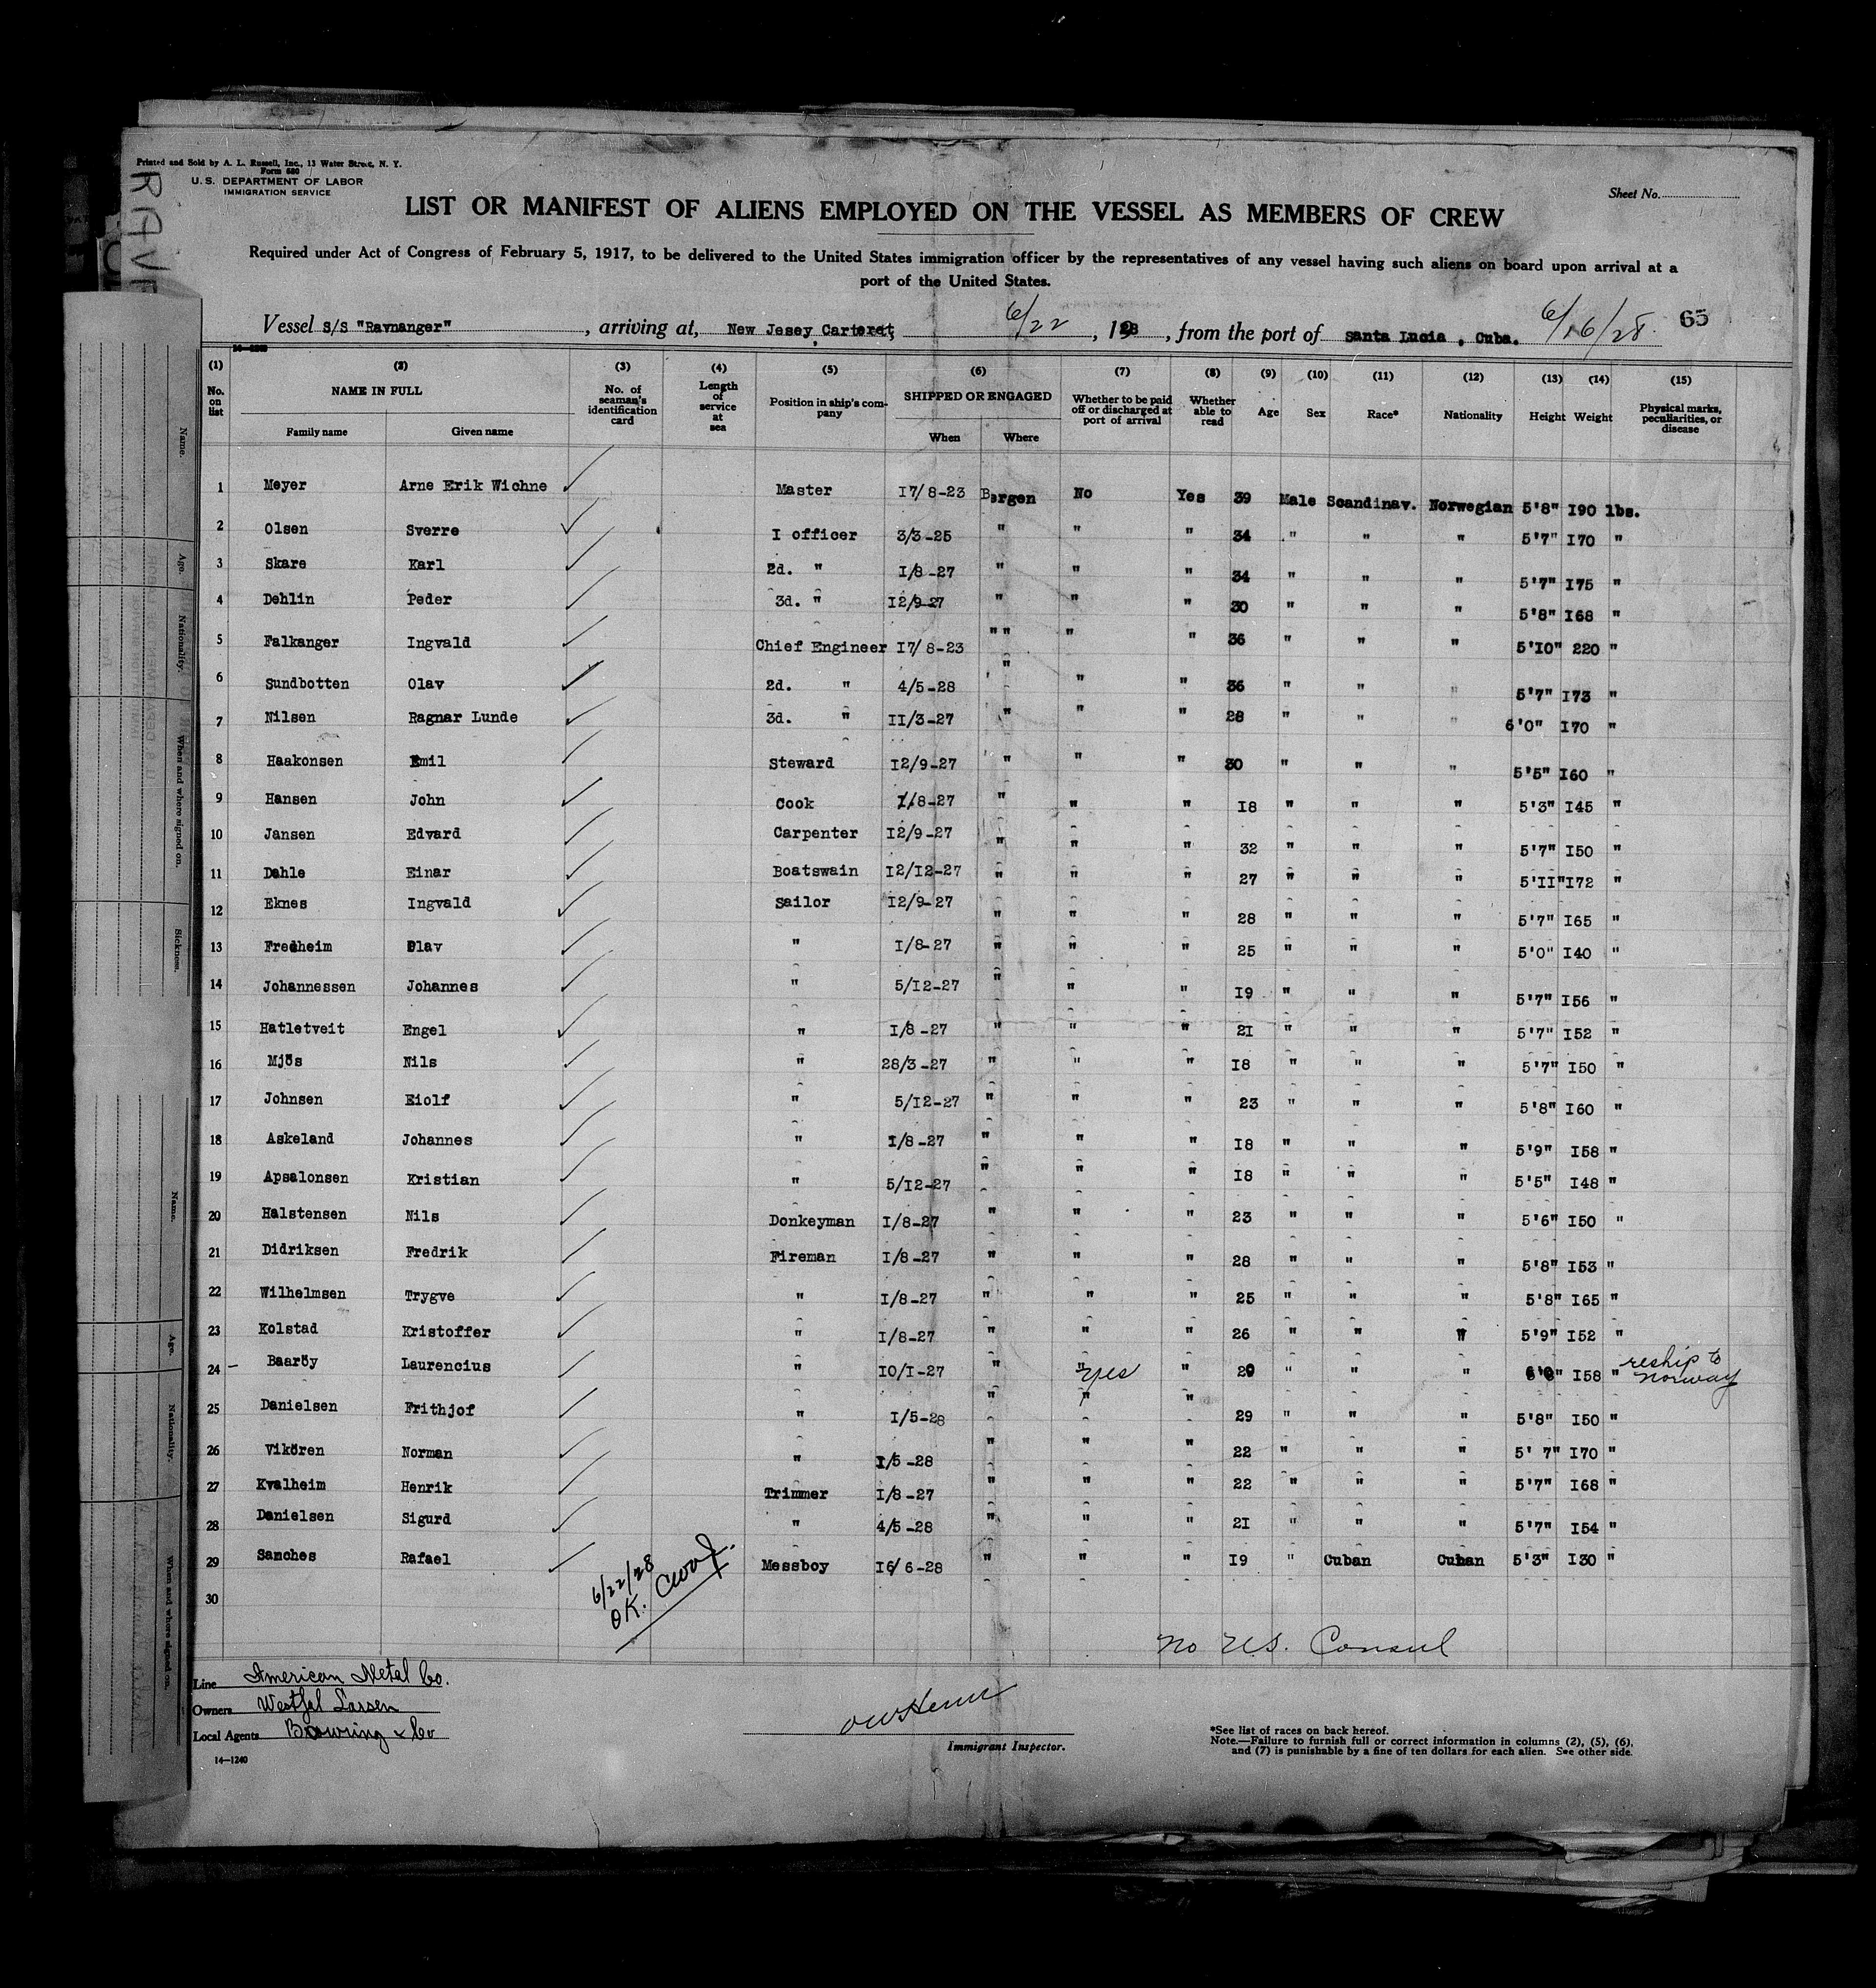 Printed and Sold by A. L. Russell, Inc., 13 Water Street, N. Y.
Form 680
U. S. DEPARTMENT OF LABOR
IMMIGRATION SERVICE
Sheet No.
LIST OR MANIFEST OF ALIENS EMPLOYED ON THE VESSEL AS MEMBERS OF CREW
Required under Act of Congress of February 5, 1917, to be delivered to the United States immigration officer by the representatives of any vessel having such aliens on board upon arrival at a
port of the United States.
Vessel S/S "Ravnanger", arriving at, New Jesey, Carteret, 6/22, 1928, from the port of Santa Lucia, Cuba. 6/16/28. 65
14-1240
(1) (2) (3) (4) (5) (6) (7) (8) (9) (10) (11) (12) (13) (14) (15)
No. on list NAME IN FULL Family name Given name No. of seaman's identification card Length of service at sea Position in ship's company SHIPPED OR ENGAGED When Where Whether to be paid off or discharged at port of arrival Whether able to read Age Sex Race* Nationality Height Weight Physical marks, peculiarities, or disease
1 Meyer Arne Erik Wichne Master I7/8-23 Bergen No Yes 39 Male Scandinav. Norwegian 5'8" I90 lbs.
2 Olsen Sverre I officer 3/3-25 " " " 34 " " " 5'7" I70 "
3 Skare Karl 2d. " I/8-27 " " " 34 " " " 5'7" I75 "
4 Dehlin Peder 3d. " I2/9-27 " " " 30 " " " 5'8" I68 "
5 Falkanger Ingvald Chief Engineer I7/8-23 " " " " 36 " " " 5'I0" 220 "
6 Sundbotten Olav 2d. " 4/5-28 " " " 36 " " " 5'7" I73 "
7 Nilsen Ragnar Lunde 3d. " II/3-27 " " " 28 " " " 6'0" I70 "
8 Haakonsen Emil Steward I2/9-27 " " " 30 " " " 5'5" I60 "
9 Hansen John Cook I/8-27 " " " I8 " " " 5'3" I45 "
10 Jansen Edvard Carpenter I2/9-27 " " " 32 " " " 5'7" I50 "
11 Dahle Einar Boatswain I2/I2-27 " " " 27 " " " 5'II" I72 "
12 Eknes Ingvald Sailor I2/9-27 " " " 28 " " " 5'7" I65 "
13 Fredheim Olav " I/8-27 " " " 25 " " " 5'0" I40 "
14 Johannessen Johannes " 5/I2-27 " " " I9 " " " 5'7" I56 "
15 Hatletveit Engel " I/8-27 " " " 2I " " " 5'7" I52 "
16 Mjös Nils " 28/3-27 " " " I8 " " " 5'7" I50 "
17 Johnsen Eiolf " 5/I2-27 " " " 23 " " " 5'8" I60 "
18 Askeland Johannes " I/8-27 " " " I8 " " " 5'9" I58 "
19 Apsalonsen Kristian " 5/I2-27 " " " I8 " " " 5'5" I48 "
20 Halstensen Nils Donkeyman I/8-27 " " " 23 " " " 5'6" I50 "
21 Didriksen Fredrik Fireman I/8-27 " " " 28 " " " 5'8" I53 "
22 Wilhelmsen Trygve " I/8-27 " " " 25 " " " 5'8" I65 "
23 Kolstad Kristoffer " I/8-27 " " " 26 " " " 5'9" I52 "
24 - Baaröy Laurencius " I0/I-27 " " yes " 20 " " " 6'0" I58 " reship to Norway
25 Danielsen Frithjof " I/5-28 " " " 29 " " " 5'8" I50 "
26 Vikören Norman " I/5-28 " " " 22 " " " 5'7" I70 "
27 Kvalheim Henrik Trimmer I/8-27 " " " 22 " " " 5'7" I68 "
28 Danielsen Sigurd " 4/5-28 " " " 2I " " " 5'7" I54 "
29 Sanches Rafael Messboy I6/6-28 " " " I9 " Cuban Cuban 5'3" I30 "
30
6/22/28
OK.
No U.S. Consul
Line American Metal Co.
Owners Westfal Larsen
Local Agents Bowring & Co
Immigrant Inspector.
14-1240
*See list of races on back hereof.
Note.—Failure to furnish full or correct information in columns (2), (5), (6),
and (7) is punishable by a fine of ten dollars for each alien. See other side.
Name.
Age.
Nationality.
When and where signed on.
Sickness.
Name.
Age.
Nationality.
When and where signed on.